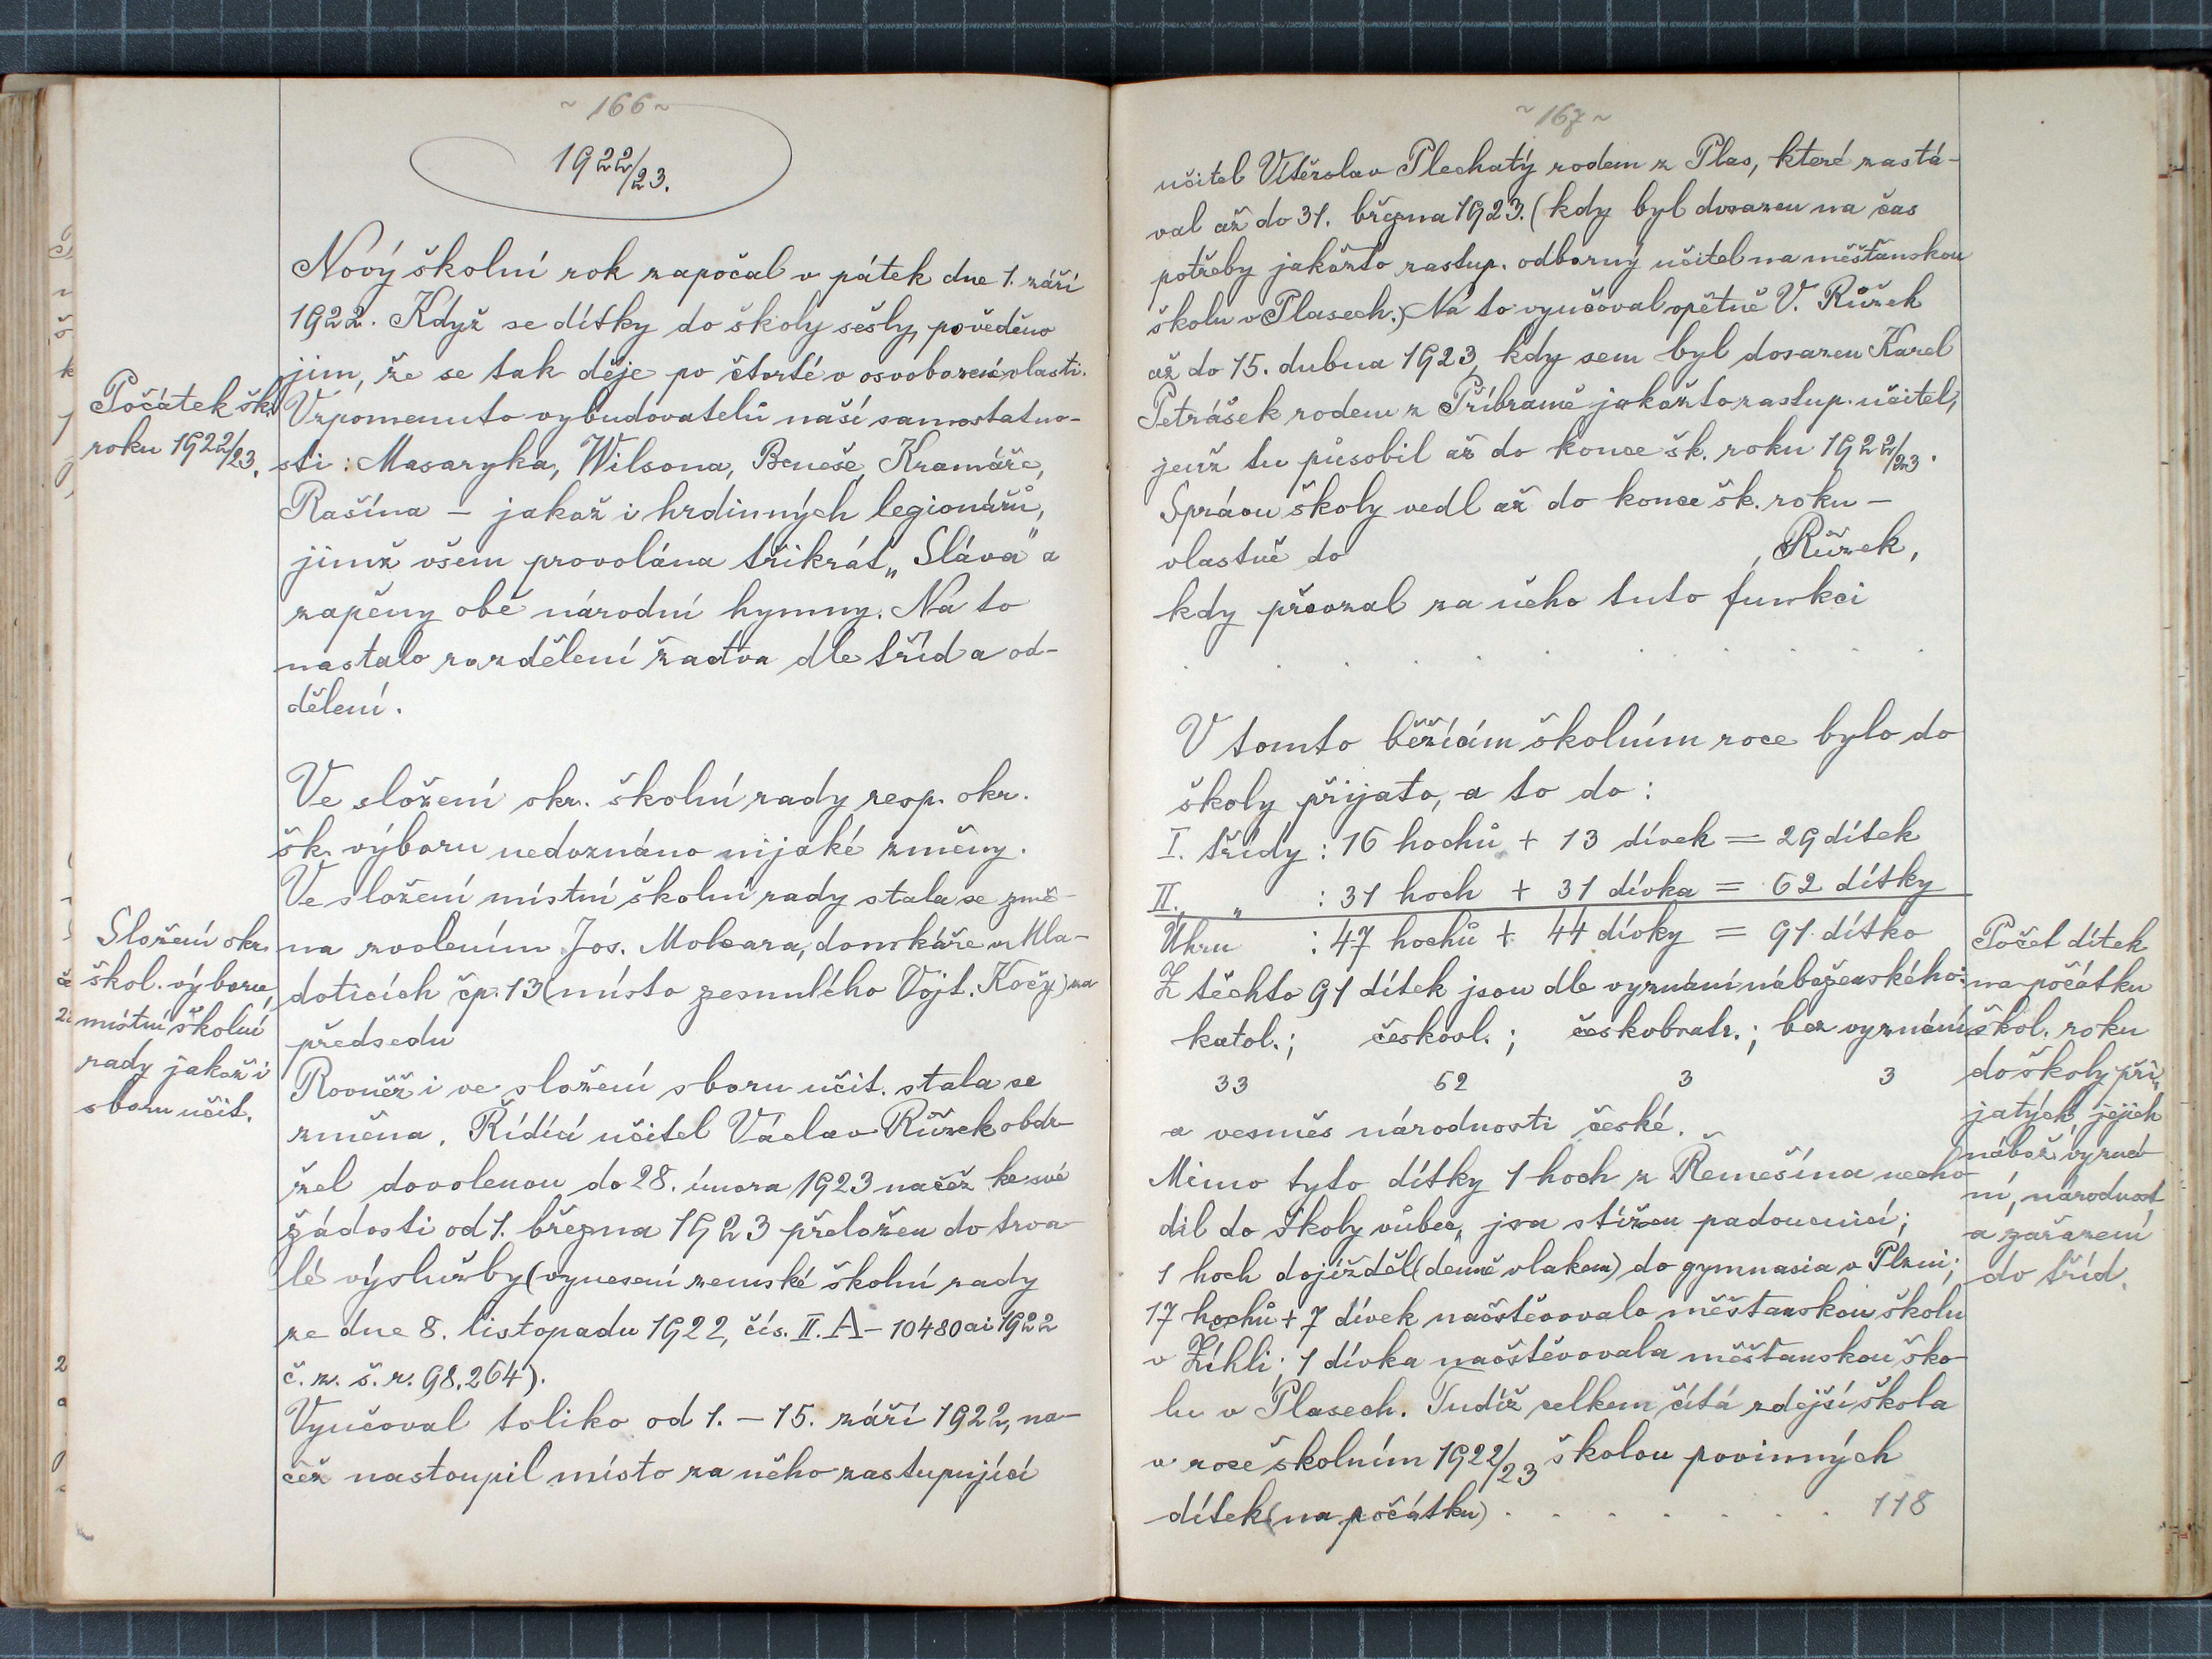 ~ 166 ~
1922/23.
Počátek šk.
roku 1922/23.
Nový školní rok započal v pátek dne 1. září
1922. Když se dítky do školy sešly, pověděno
jim, že se tak děje po čtvrté v osvobozené vlasti.
Vzpomenuto vybudovatelů naší samostatno-
sti: Masaryka, Wilsona, Beneše, Kramáře,
Rašína – jakož i hrdinných legionářů,
jimž všem provolána třikrát „Sláva" a
zapěny obě národní hymny. Na to
nastalo rozdělení žactva dle tříd a od-
dělení.
Složení okr.
škol. výboru,
místní školní
rady jakož i
sboru učit.
Ve složení okr. školní rady resp. okr.
šk. výboru nedoznáno nijaké změny.
Ve složení místní školní rady stala se změ-
na zvolením Jos. Molcara, domkáře v Mla-
doticích čp. 13 (místo zesnulého Vojt. Kočy) za
předsedu
Rovněž i ve složení sboru učit. stala se
změna. Řídící učitel Václav Růžek obdr-
žel dovolenou do 28. února 1923 načež ke své
žádosti od 1. března 1923 přeložen do trva-
lé výslužby (vynesení zemské školní rady
ze dne 8. listopadu 1922, čís. II. A – 10480 ai 1922
č. z. š. r. 98.264).
Vyučoval toliko od 1. – 15. září 1922, na-
čež nastoupil místo za něho zastupující
~ 167 ~
učitel Vítězslav Plechatý rodem z Plas, které zastá-
val až do 31. března 1923. (kdy byl dosazen na čas
potřeby jakožto zastup. odborný učitel na měšťanskou
školu v Plasech.) Na to vyučoval opětně V. Růžek
až do 15. dubna 1923, kdy sem byl dosazen Karel
Petrášek rodem z Příbramě jakožto zastup. učitel,
jenž tu působil až do konce šk. roku 1922/23.
Správu školy vedl až do konce šk. roku –
vlastně do , Růžek,
kdy převzal za něho tuto funkci
. . . . . . . . . .
V tomto běžícím školním roce bylo do
školy přijato, a to do:
I. třídy : 16 hochů + 13 dívek = 29 dítek
II. „ : 31 hoch + 31 dívka = 62 dítky
Úhrn : 47 hochů + 44 dívky = 91 dítko
Z těchto 91 dítek jsou dle vyznání náboženského:
katol.; českosl.; českobratr.; bez vyznání
33 52 3 3
a vesměs národnosti české.
Mimo tyto dítky 1 hoch z Řemešína necho-
dil do školy vůbec, jsa stížen padoucnicí;
1 hoch dojížděl (denně vlakem) do gymnasia v Plzni;
17 hochů + 7 dívek navštěvovalo měšťanskou školu
v Žihli; 1 dívka navštěvovala měšťanskou ško-
lu v Plasech. Tudíž celkem čítá zdejší škola
v roce školním 1922/23 školou povinných
dítek (na počátku) . . . . . . . 118
Počet dítek
na počátku
škol. roku
do školy při-
jatých, jejich
nábož. vyzná-
ní, národnost
a zařazení
do tříd.